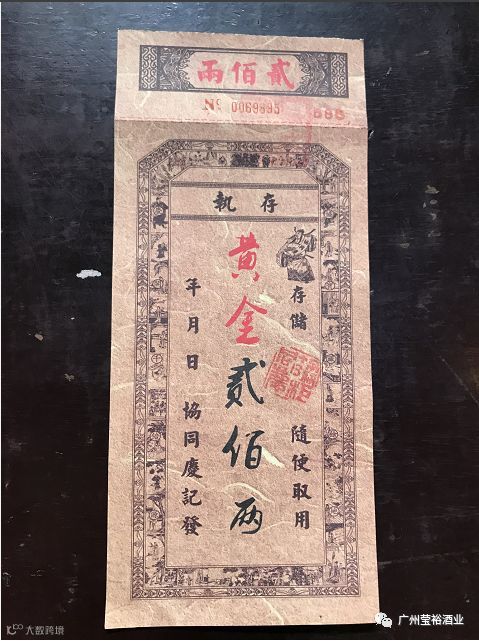 貳佰兩
№ 0069895
895
存執
黃金貳佰两
存儲 隨便取用
年月日 協同慶記發
大数跨境
广州莹裕酒业